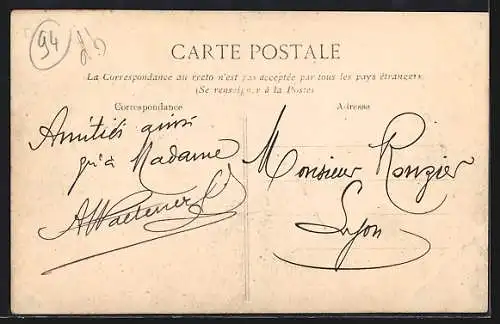 94
CARTE POSTALE
La Correspondance au recto n'est pas acceptée par tous les pays étrangers
(Se renseigner à la Poste)
Correspondance
Adresse
Amitiés ainsi
qu'à Madame
Monsieur Ronzier
Lyon